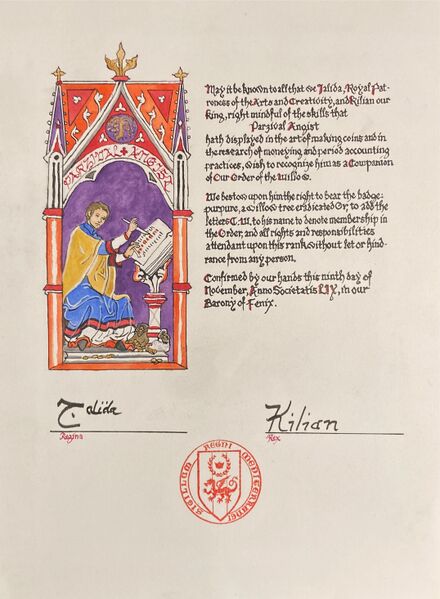 PARZIVAL ANGIST
May it be known to all that we Talida, Royal Pat-
roness of the Arts and Creativity, and Kilian our
King, right mindful of the skills that
Parzival Angist
hath displayed in the art of making coins and in
the research of moneying and period accounting
practices, wish to recognize him as a Companion
of Our Order of the Willow.
We bestow upon him the right to bear the badge:
purpure, a willow tree eradicated Or, to add the
letters C.W. to his name to denote membership in
the Order, and all rights and responsibilities
attendant upon this rank without let or hind-
rance from any person.
Confirmed by our hands this ninth day of
November, Anno Societatis LIX, in our
Barony of Fenix.
Talida
Regina
Kilian
Rex
SIGILLUM REGNI MEDITERRANEI